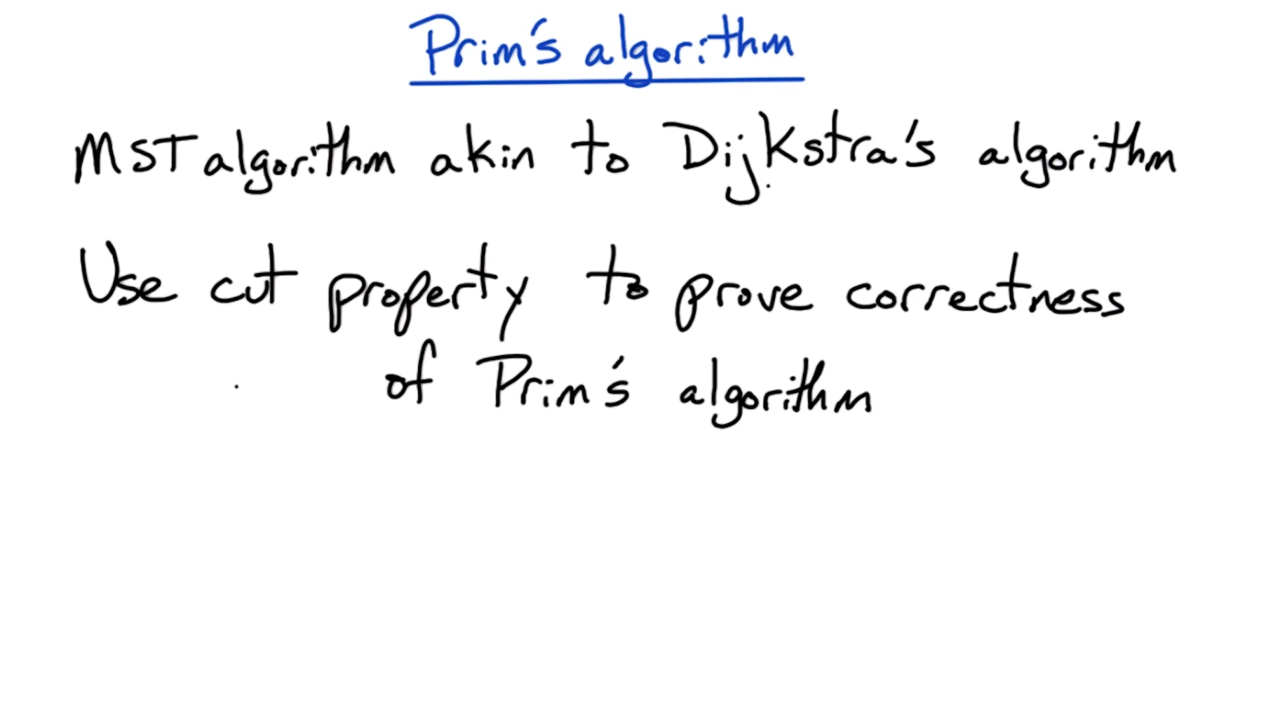 Prim's algorithm
MST algorithm akin to Dijkstra's algorithm
Use cut property to prove correctness
of Prim's algorithm